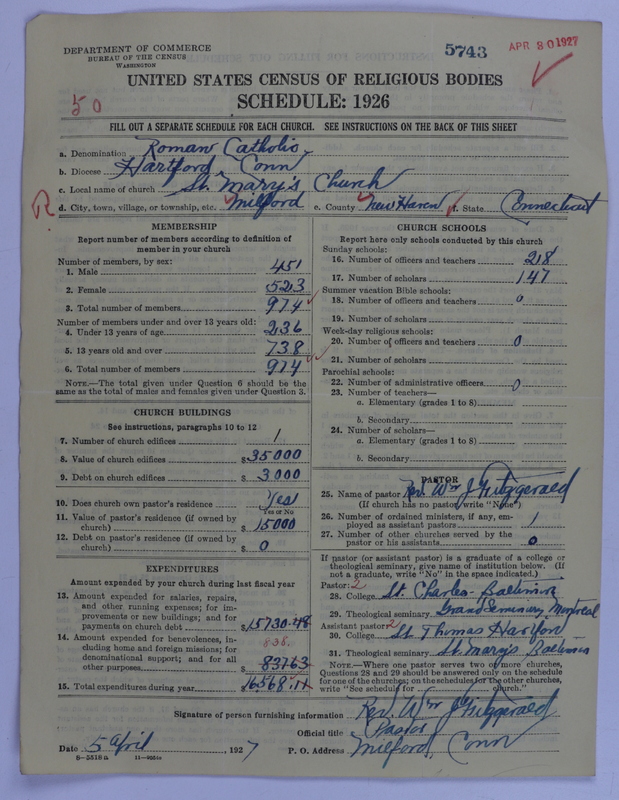 DEPARTMENT OF COMMERCE
BUREAU OF THE CENSUS
WASHINGTON
5743
APR 30 1927
UNITED STATES CENSUS OF RELIGIOUS BODIES
50
SCHEDULE: 1926
FILL OUT A SEPARATE SCHEDULE FOR EACH CHURCH. SEE INSTRUCTIONS ON THE BACK OF THIS SHEET
a. Denomination Roman Catholic
b. Diocese Hartford Conn
c. Local name of church St. Mary's Church
R d. City, town, village, or township, etc. Milford e. County New Haven f. State Connecticut
MEMBERSHIP
Report number of members according to definition of
member in your church
Number of members, by sex:
1. Male 451
2. Female 523
3. Total number of members 974
Number of members under and over 13 years old:
4. Under 13 years of age 236
5. 13 years old and over 738
6. Total number of members 974
NOTE.—The total given under Question 6 should be the
same as the total of males and females given under Question 3.
CHURCH BUILDINGS
See instructions, paragraphs 10 to 12
7. Number of church edifices 1
8. Value of church edifices $35000
9. Debt on church edifices $3000
10. Does church own pastor's residence? Yes
Yes or No
11. Value of pastor's residence (if owned by
church) $15000
12. Debt on pastor's residence (if owned by
church) $0
EXPENDITURES
Amount expended by your church during last fiscal year
13. Amount expended for salaries, repairs,
and other running expenses; for im-
provements or new buildings; and for
payments on church debt $15730.48
14. Amount expended for benevolences, in-
838.
cluding home and foreign missions; for
denominational support; and for all
other purposes $837.63
15. Total expenditures during year $16568.11
CHURCH SCHOOLS
Report here only schools conducted by this church
Sunday schools:
16. Number of officers and teachers 218
17. Number of scholars 147
Summer vacation Bible schools:
18. Number of officers and teachers 0
19. Number of scholars
Week-day religious schools:
20. Number of officers and teachers 0
21. Number of scholars
Parochial schools:
22. Number of administrative officers 0
23. Number of teachers—
a. Elementary (grades 1 to 8)
b. Secondary
24. Number of scholars—
a. Elementary (grades 1 to 8)
b. Secondary
PASTOR
25. Name of pastor Rev. Wm J Fitzgerald
(If church has no pastor, write "None")
26. Number of ordained ministers, if any, em-
ployed as assistant pastors 1
27. Number of other churches served by the
pastor or his assistants 0
If pastor (or assistant pastor) is a graduate of a college or
theological seminary, give name of institution below. (If
not a graduate, write "No" in the space indicated.)
Pastor: 2
28. College St. Charles Baltimore
29. Theological seminary Grand Seminary Montreal
Assistant pastor: 2
30. College St. Thomas Hartford
31. Theological seminary St. Mary's Baltimore
NOTE.—Where one pastor serves two or more churches,
Questions 28 and 29 should be answered only on the schedule
for one of the churches; on the schedules for the other churches,
write "See schedule for church."
Signature of person furnishing information Rev. Wm J Fitzgerald
Official title Pastor
Date 5 April, 1927 P. O. Address Milford, Conn
8—5518a